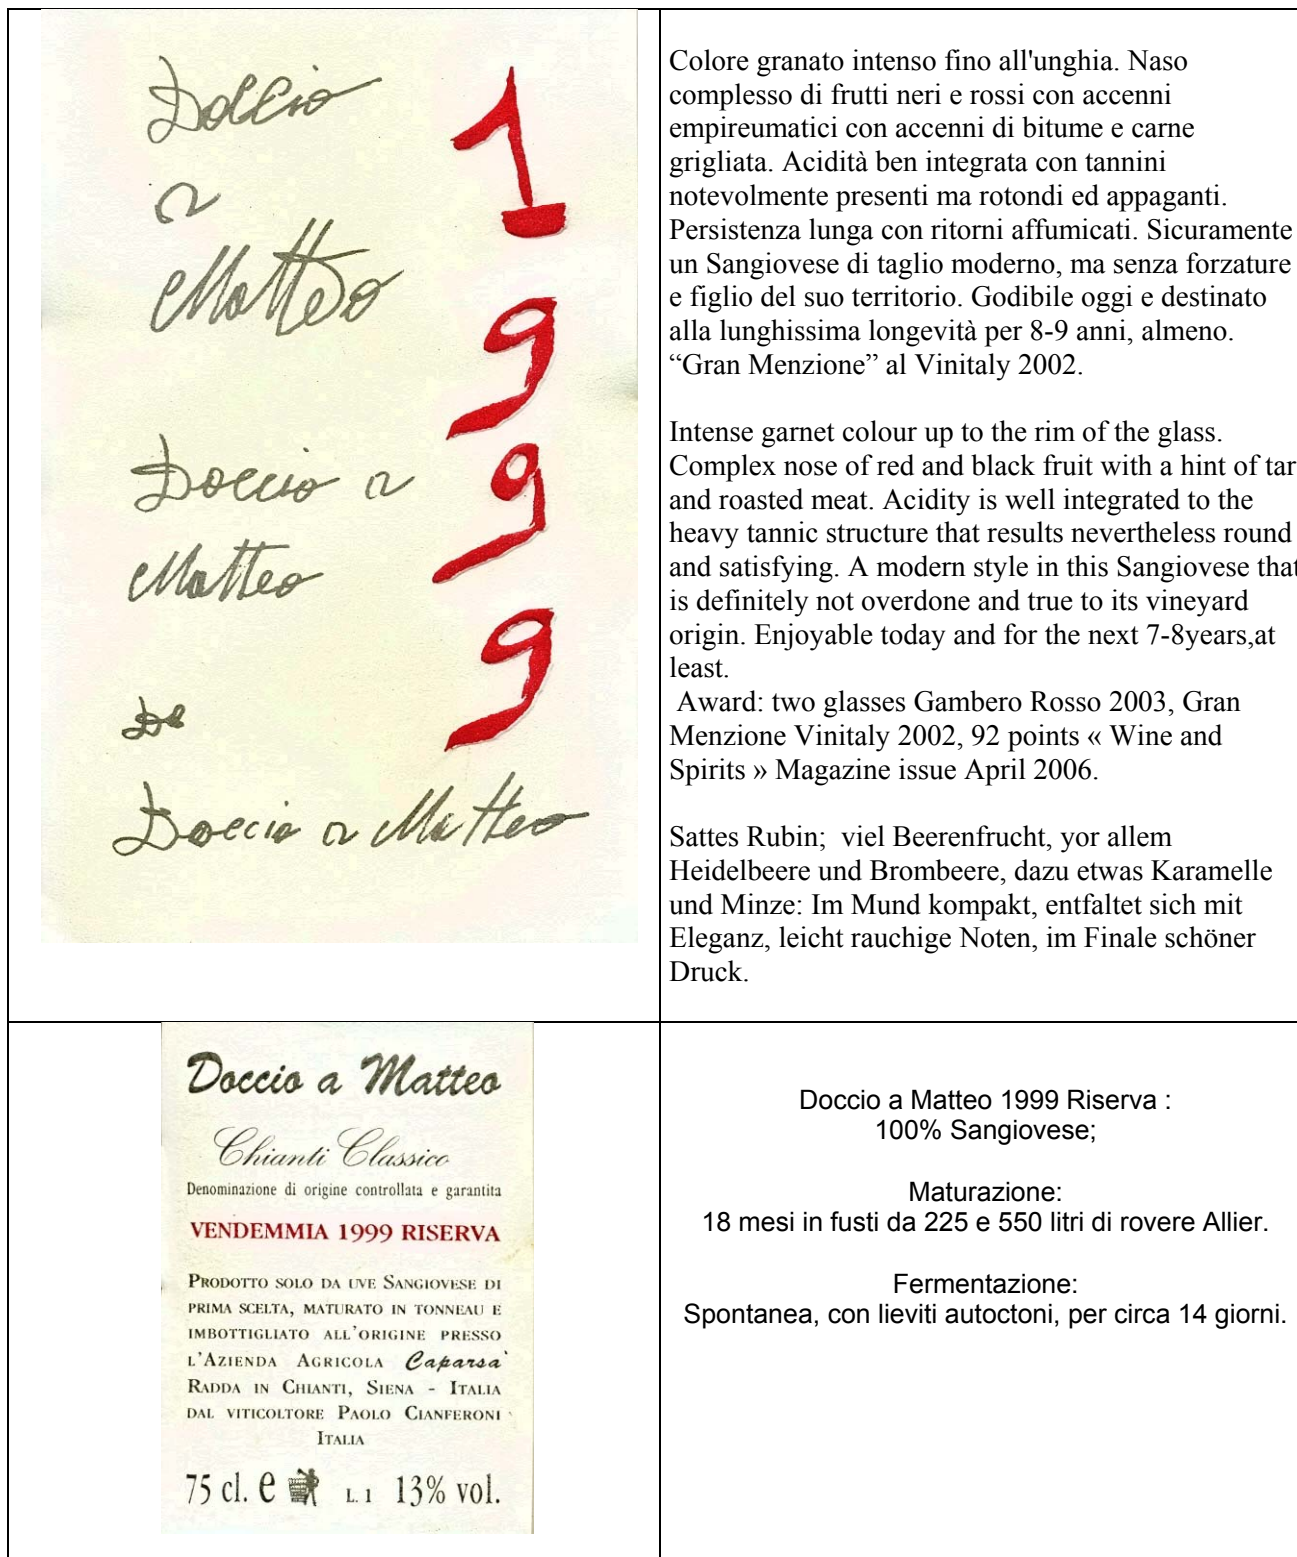 Doccio
a
Matteo
1
9
9
9
Doccio a
Matteo
Do
Doccio a Matteo
Colore granato intenso fino all'unghia. Naso
complesso di frutti neri e rossi con accenni
empireumatici con accenni di bitume e carne
grigliata. Acidità ben integrata con tannini
notevolmente presenti ma rotondi ed appaganti.
Persistenza lunga con ritorni affumicati. Sicuramente
un Sangiovese di taglio moderno, ma senza forzature
e figlio del suo territorio. Godibile oggi e destinato
alla lunghissima longevità per 8-9 anni, almeno.
“Gran Menzione” al Vinitaly 2002.
Intense garnet colour up to the rim of the glass.
Complex nose of red and black fruit with a hint of tar
and roasted meat. Acidity is well integrated to the
heavy tannic structure that results nevertheless round
and satisfying. A modern style in this Sangiovese that
is definitely not overdone and true to its vineyard
origin. Enjoyable today and for the next 7-8years,at
least.
Award: two glasses Gambero Rosso 2003, Gran
Menzione Vinitaly 2002, 92 points « Wine and
Spirits » Magazine issue April 2006.
Sattes Rubin; viel Beerenfrucht, yor allem
Heidelbeere und Brombeere, dazu etwas Karamelle
und Minze: Im Mund kompakt, entfaltet sich mit
Eleganz, leicht rauchige Noten, im Finale schöner
Druck.
Doccio a Matteo
Chianti Classico
Denominazione di origine controllata e garantita
VENDEMMIA 1999 RISERVA
PRODOTTO SOLO DA UVE SANGIOVESE DI
PRIMA SCELTA, MATURATO IN TONNEAU E
IMBOTTIGLIATO ALL'ORIGINE PRESSO
L'AZIENDA AGRICOLA Caparsa`
RADDA IN CHIANTI, SIENA - ITALIA
DAL VITICOLTORE PAOLO CIANFERONI
ITALIA
75 cl. e L. 1 13% vol.
Doccio a Matteo 1999 Riserva :
100% Sangiovese;
Maturazione:
18 mesi in fusti da 225 e 550 litri di rovere Allier.
Fermentazione:
Spontanea, con lieviti autoctoni, per circa 14 giorni.